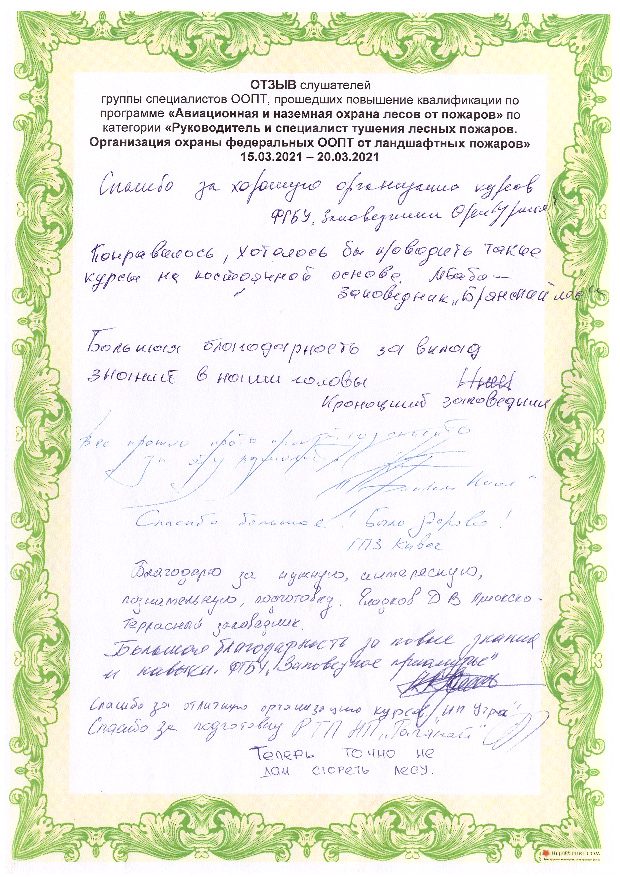 ОТЗЫВ слушателей
группы специалистов ООПТ, прошедших повышение квалификации по
программе «Авиационная и наземная охрана лесов от пожаров» по
категории «Руководитель и специалист тушения лесных пожаров.
Организация охраны федеральных ООПТ от ландшафтных пожаров»
15.03.2021 – 20.03.2021
Спасибо за хорошую организацию курсов
ФГБУ „Заповедники Оренбуржья"
Понравилось, хотелось бы проводить такие
курсы на постоянной основе.
Заповедник „Брянский лес"
Большая благодарность за вклад
знаний в наши головы
Кроноцкий заповедник
Все прошло
за
Спасибо большое! Было здорово!
ГПЗ Кивач
Благодарю за нужную, интересную,
познавательную, подготовку. Гладков Д В Приокско-
Террасный заповедник.
Большая благодарность за новые знания
и навыки. ФГБУ „Заповедное приамурье"
Спасибо за отличную организацию курсов, НП Угра"
Спасибо за подготовку РТП НП „Таганай"
Теперь точно не
дам сгореть лесу.